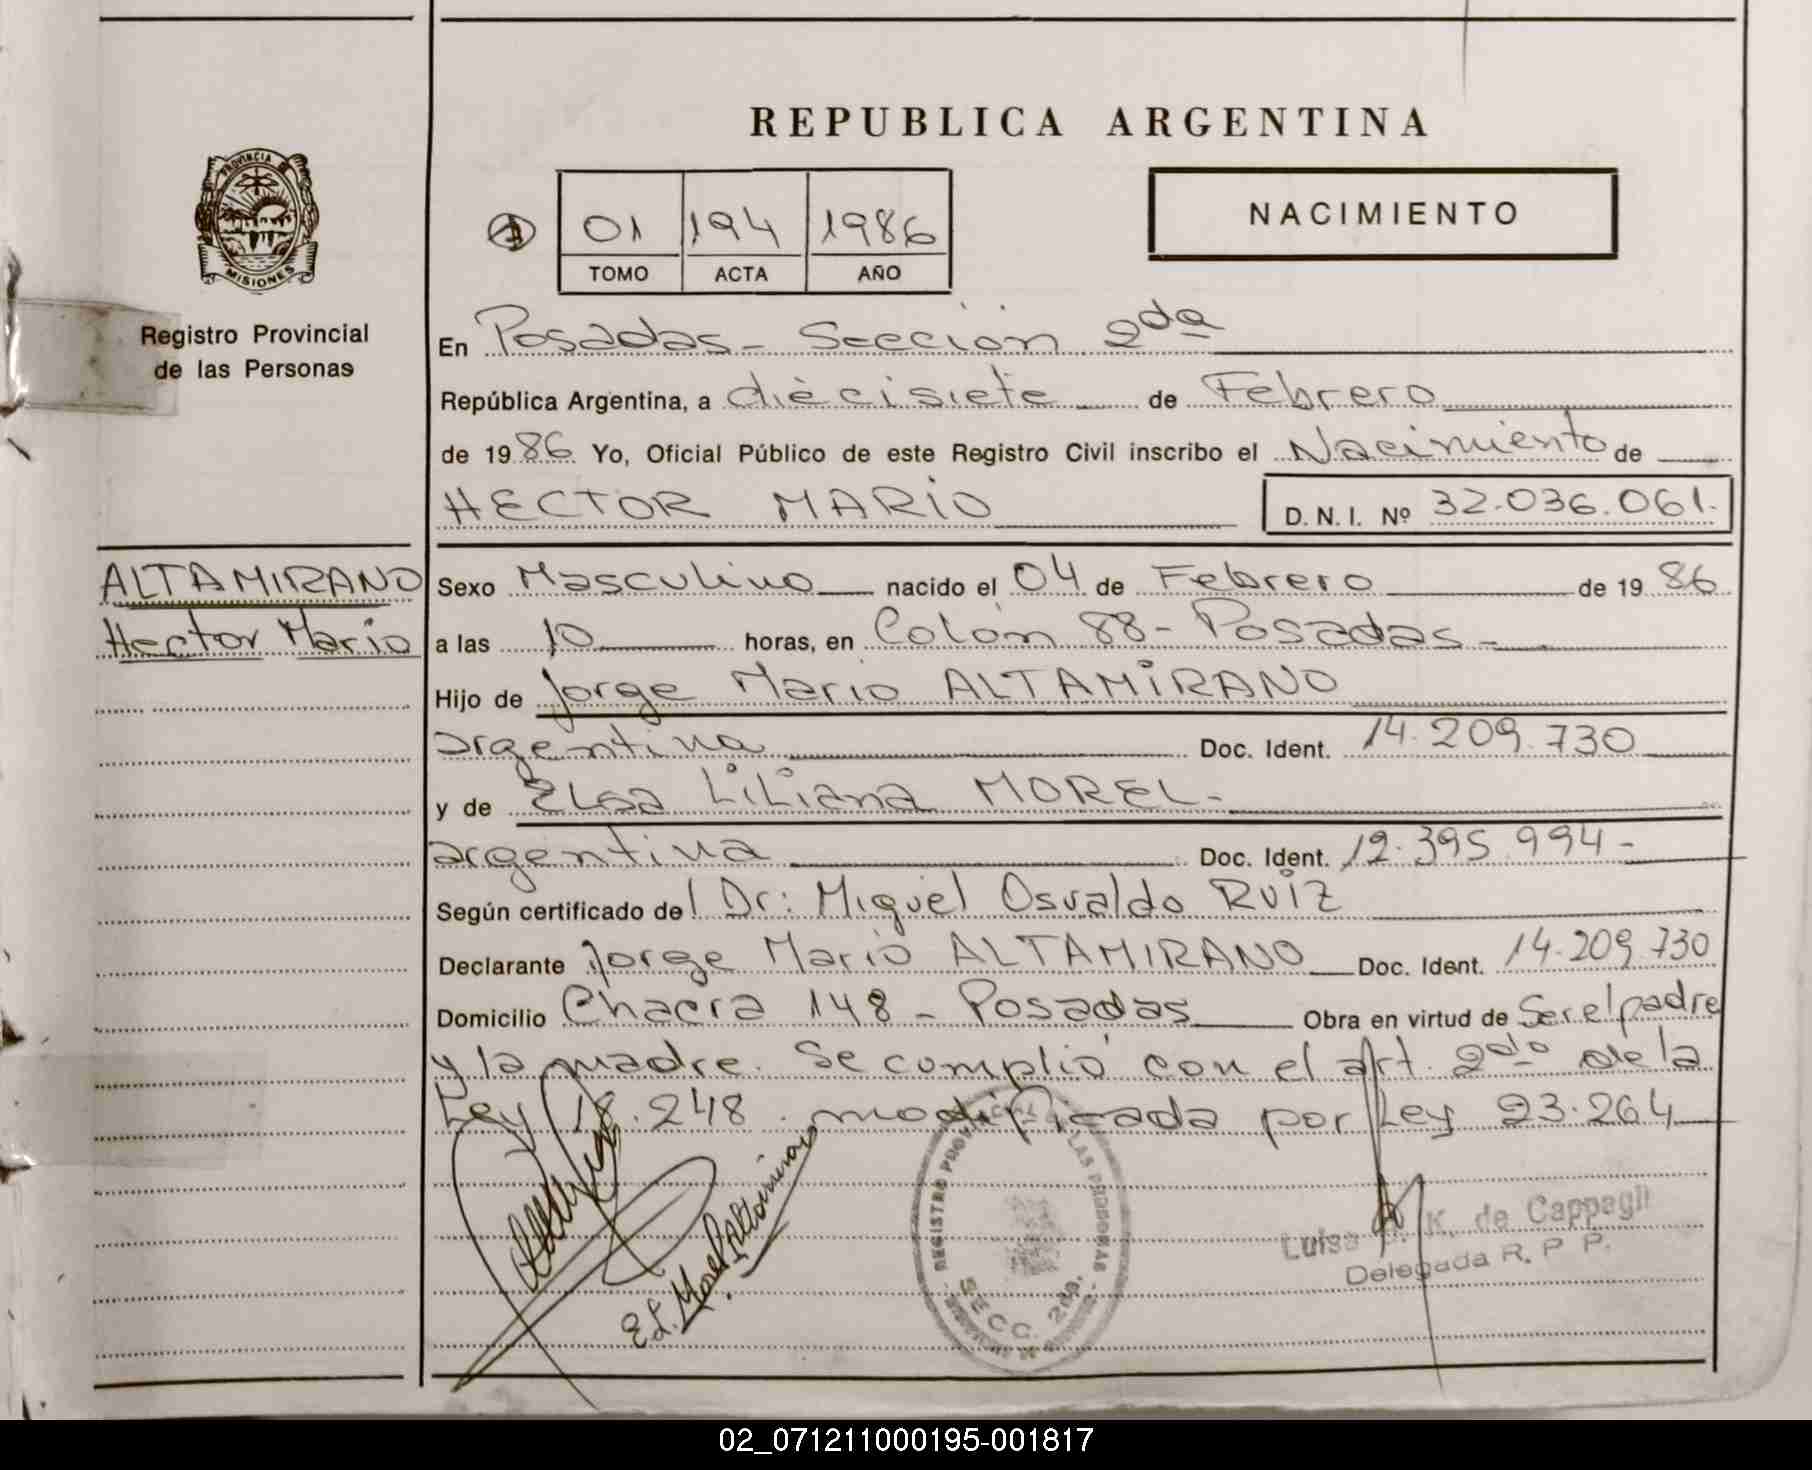 REPUBLICA ARGENTINA
PROVINCIA DE
MISIONES
Registro Provincial
de las Personas
01 194 1986
TOMO ACTA AÑO
NACIMIENTO
En Posadas - Sección 2da
República Argentina, a diecisiete de Febrero
de 1986 Yo, Oficial Público de este Registro Civil inscribo el Nacimiento de
HECTOR MARIO D. N. I. Nº 32.036.061.
ALTAMIRANO
Hector Mario
Sexo Masculino nacido el 04 de Febrero de 1986
a las 10 horas, en Colón 88 - Posadas -
Hijo de Jorge Mario ALTAMIRANO
argentina Doc. Ident. 14.209.730
y de Elsa Liliana MOREL -
argentina Doc. Ident. 12.395.994 -
Según certificado del Dr: Miguel Osvaldo RUIZ
Declarante Jorge Mario ALTAMIRANO Doc. Ident. 14.209.730
Domicilio Chacra 148 - Posadas Obra en virtud de Ser el padre
y la madre. Se cumplió con el art. 2do de la
Ley 18.248. modificada por Ley 23.264
E. L. Morel
REGISTRO PROVINCIAL DE LAS PERSONAS
SECC. 2da.
Luisa K. de Cappagli
Delegada R. P. P.
02_071211000195-001817